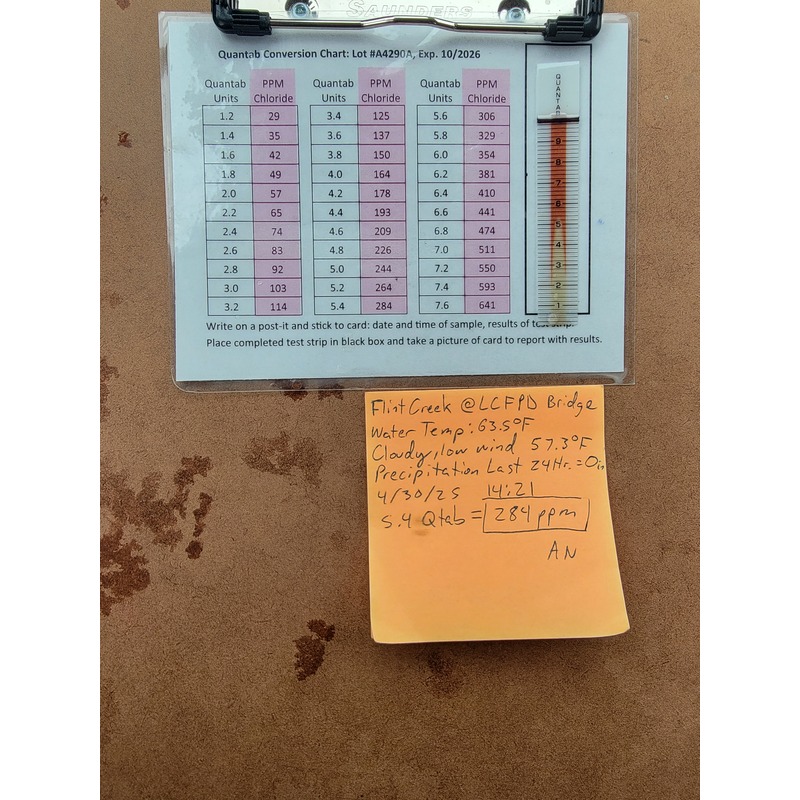 SAUNDERS
Quantab Conversion Chart: Lot #A4290A, Exp. 10/2026
Quantab Units PPM Chloride Quantab Units PPM Chloride Quantab Units PPM Chloride
1.2 29 3.4 125 5.6 306
1.4 35 3.6 137 5.8 329
1.6 42 3.8 150 6.0 354
1.8 49 4.0 164 6.2 381
2.0 57 4.2 178 6.4 410
2.2 65 4.4 193 6.6 441
2.4 74 4.6 209 6.8 474
2.6 83 4.8 226 7.0 511
2.8 92 5.0 244 7.2 550
3.0 103 5.2 264 7.4 593
3.2 114 5.4 284 7.6 641
QUANTAB
9
8
7
6
5
4
3
2
1
Write on a post-it and stick to card: date and time of sample, results of test strip.
Place completed test strip in black box and take a picture of card to report with results.
Flint Creek @LCFPD Bridge
Water Temp: 63.5°F
Cloudy, low wind 57.3°F
Precipitation Last 24Hr. = 0in
4/30/25 14:21
5.4 Qtab = 284 ppm
AN